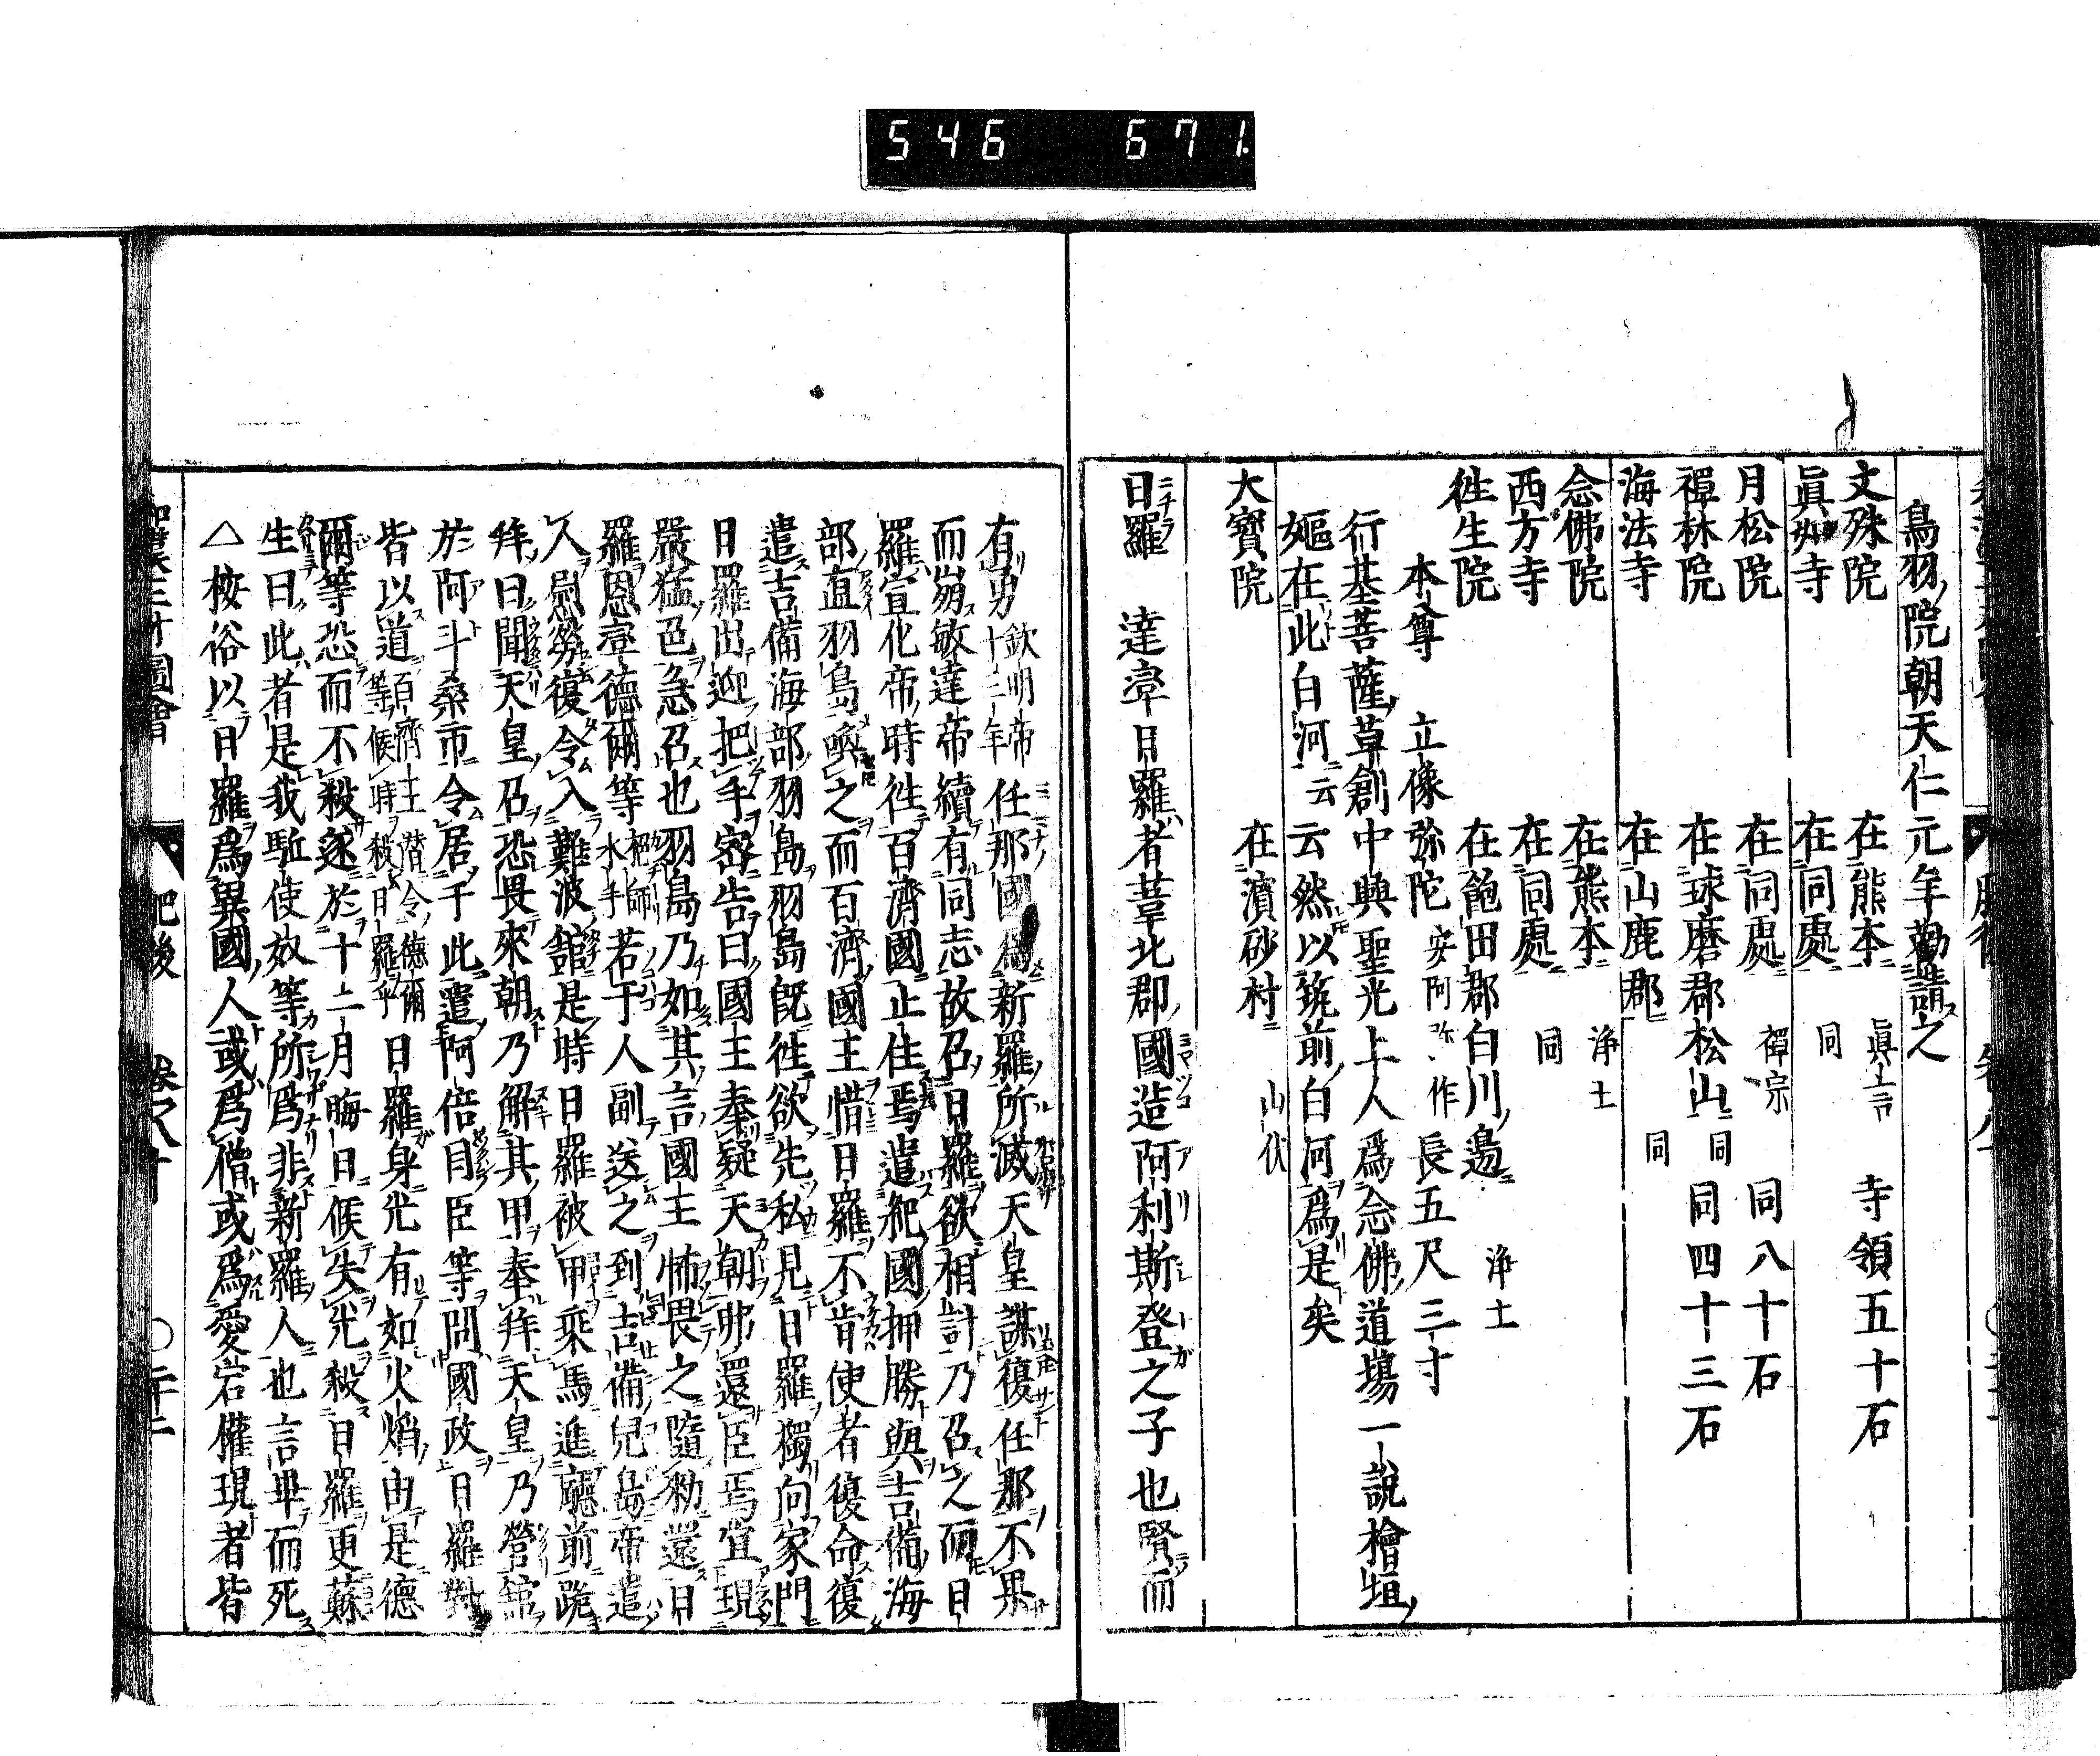 546 671
鳥羽院朝天仁元年勸請之
文殊院 在熊本 眞言 寺領五十石
眞如寺 在同處 同
月松院 在同處 禪宗 同八十石
禪林院 在球磨郡松山 同 同四十三石
海法寺 在山鹿郡 同
念佛院 在熊本 浄土
西方寺 在同處 同
徃生院 在飽田郡白川邉 浄土
本尊 立像 弥陀 安阿弥作 長五尺三寸
行基菩薩草創中興聖光上人爲念佛道塲一說檜垣
嫗在此白河云云然以筑前白河爲是矣
大寳院 在濵砂村 山伏
日羅 達率日羅者葦北郡國造阿利斯登之子也賢而
有勇 欽明帝十三年 任那國爲新羅所滅天皇謀復任那不果
而崩敏達帝續有同志故召日羅欲相計乃召之而日
羅宣化帝時徃百濟國止住焉遣紀國押勝與吉備海
部直羽島喚之而百濟國主惜日羅不肯使者復命復
遣吉備海部羽島羽島旣徃欲先私見日羅獨向家門
日羅出迎把手密告曰國主奉疑天朝弗還臣焉宜現
嚴猛色急召也羽島乃如其言國主怖畏之隨勑還日
羅恩率德爾等 柁師水手 若于人副送之到吉備兒島帝遣
人慰勞復令入難波館是時日羅被甲乘馬進廳前跪
拜曰聞天皇召恐畏來朝乃解其甲奉拜天皇乃營館
於阿斗桑市令居于此遣阿倍目臣等問國政日羅對
皆以道 百濟王潜令德爾等候時殺日羅乎 日羅身光有如火焰由是德
爾等恐而不殺遂於十二月晦日候失光殺日羅更蘇
生曰此者是我駈使奴等所爲非新羅人也言畢而死
△按俗以日羅爲異國人或爲僧或爲愛宕權現者皆
和漢三才圖會 肥後 卷之八十 ○二十二